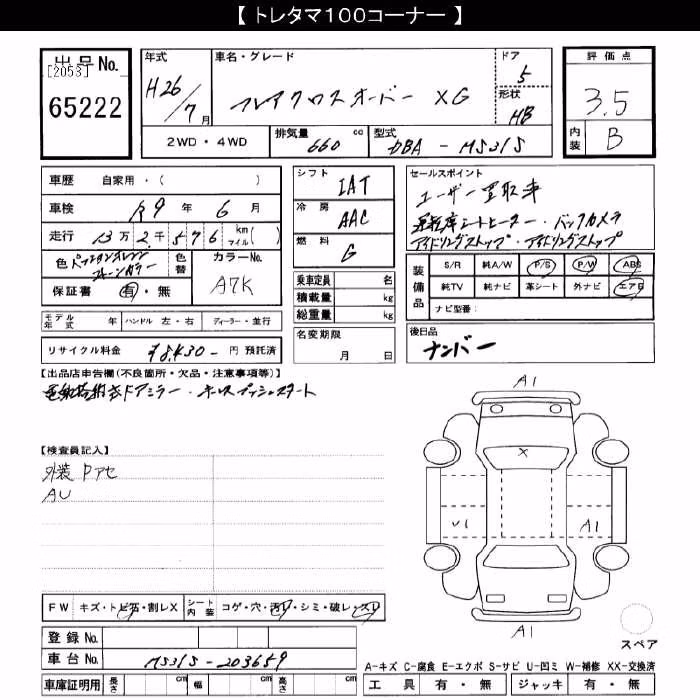 【 トレタマ100コーナー 】
出品 No.
[2053]
65222
年式
H26/7月
車名・グレード
フレアクロスオーバー XG
ドア
5
形状
HB
評価点
3.5
内装
B
2WD・4WD
排気量
660 cc
型式
DBA - MS31S
車歴 自家用・( )
車検 R9 年 6 月
走行 13万2千576 km マイル( )
色
色替
カラーNo.
A7K
保証書 有・無
モデル年式 年 ハンドル 左・右 ディーラー・並行
リサイクル料金 ¥8,430- 円 預託済
シフト
IAT
冷房
AAC
燃料
G
乗車定員 名
積載量 kg
総重量 kg
名変期限
月 日
セールスポイント
ユーザー買取車
運転席シートヒーター・バックカメラ
アイドリングストップ・アイドリングストップ
装備品
S/R 純A/W P/S P/W ABS
純TV 純ナビ 革シート 外ナビ エアB
ナビ型番:
後日品
ナンバー
【出品店申告欄(不良箇所・欠品・注意事項等)】
電動格納式ドアミラー・キーレスプッシュスタート
【検査員記入】
外装 Pアセ
AU
A1
X
U1
A1
A1
スペア
FW キズ・トビ石・割レX シート内装 コゲ・穴・汚レ・シミ・破レ・スレ
登録 No.
車台 No. MS31S-203659
車庫証明用 長さ cm 幅 cm 高さ cm
A-キズ C-腐食 E-エクボ S-サビ U-凹ミ W-補修 XX-交換済
工具 有・無 ジャッキ 有・無